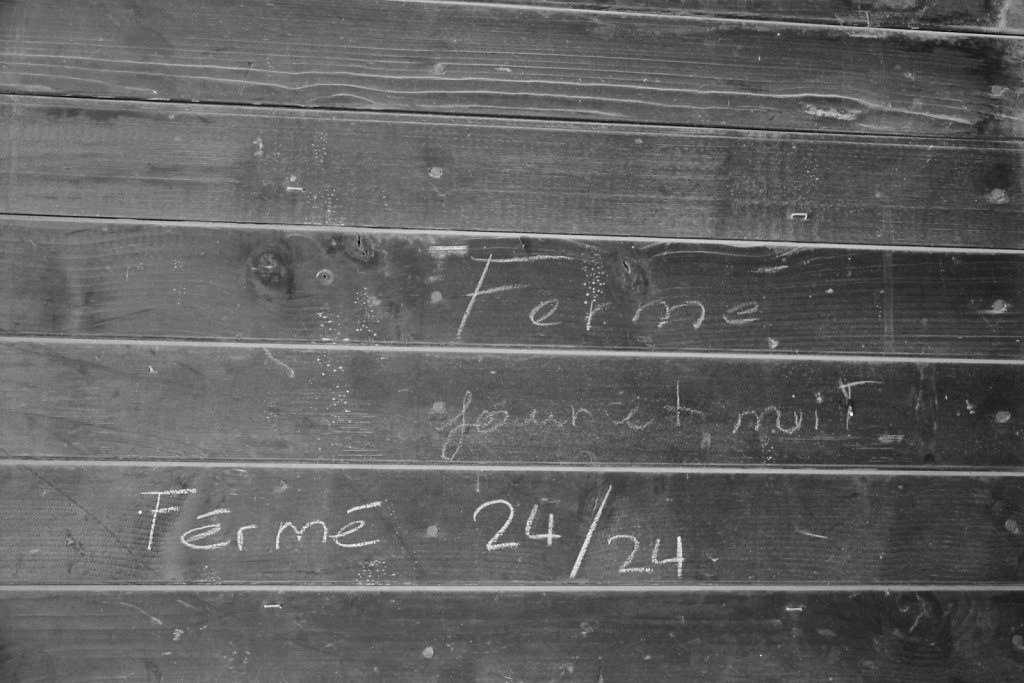 Ferme
jour et nuit
Férmé 24/24